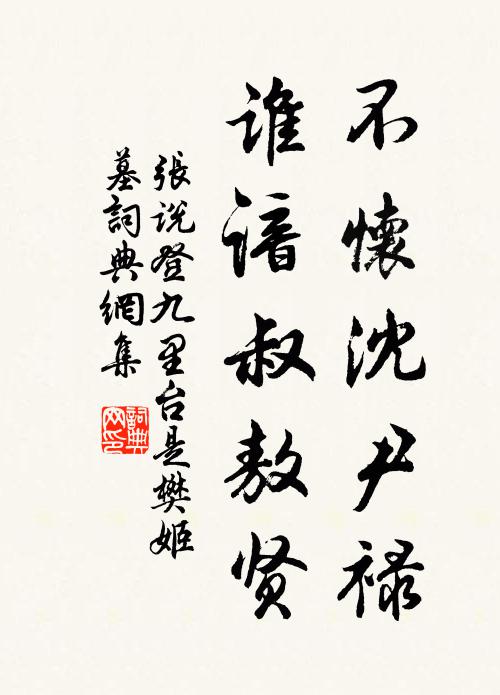 不懷沈尹禄
谁諳叔敖贤
張说登九里台是樊姬
墓詞典網集
詞典
网印